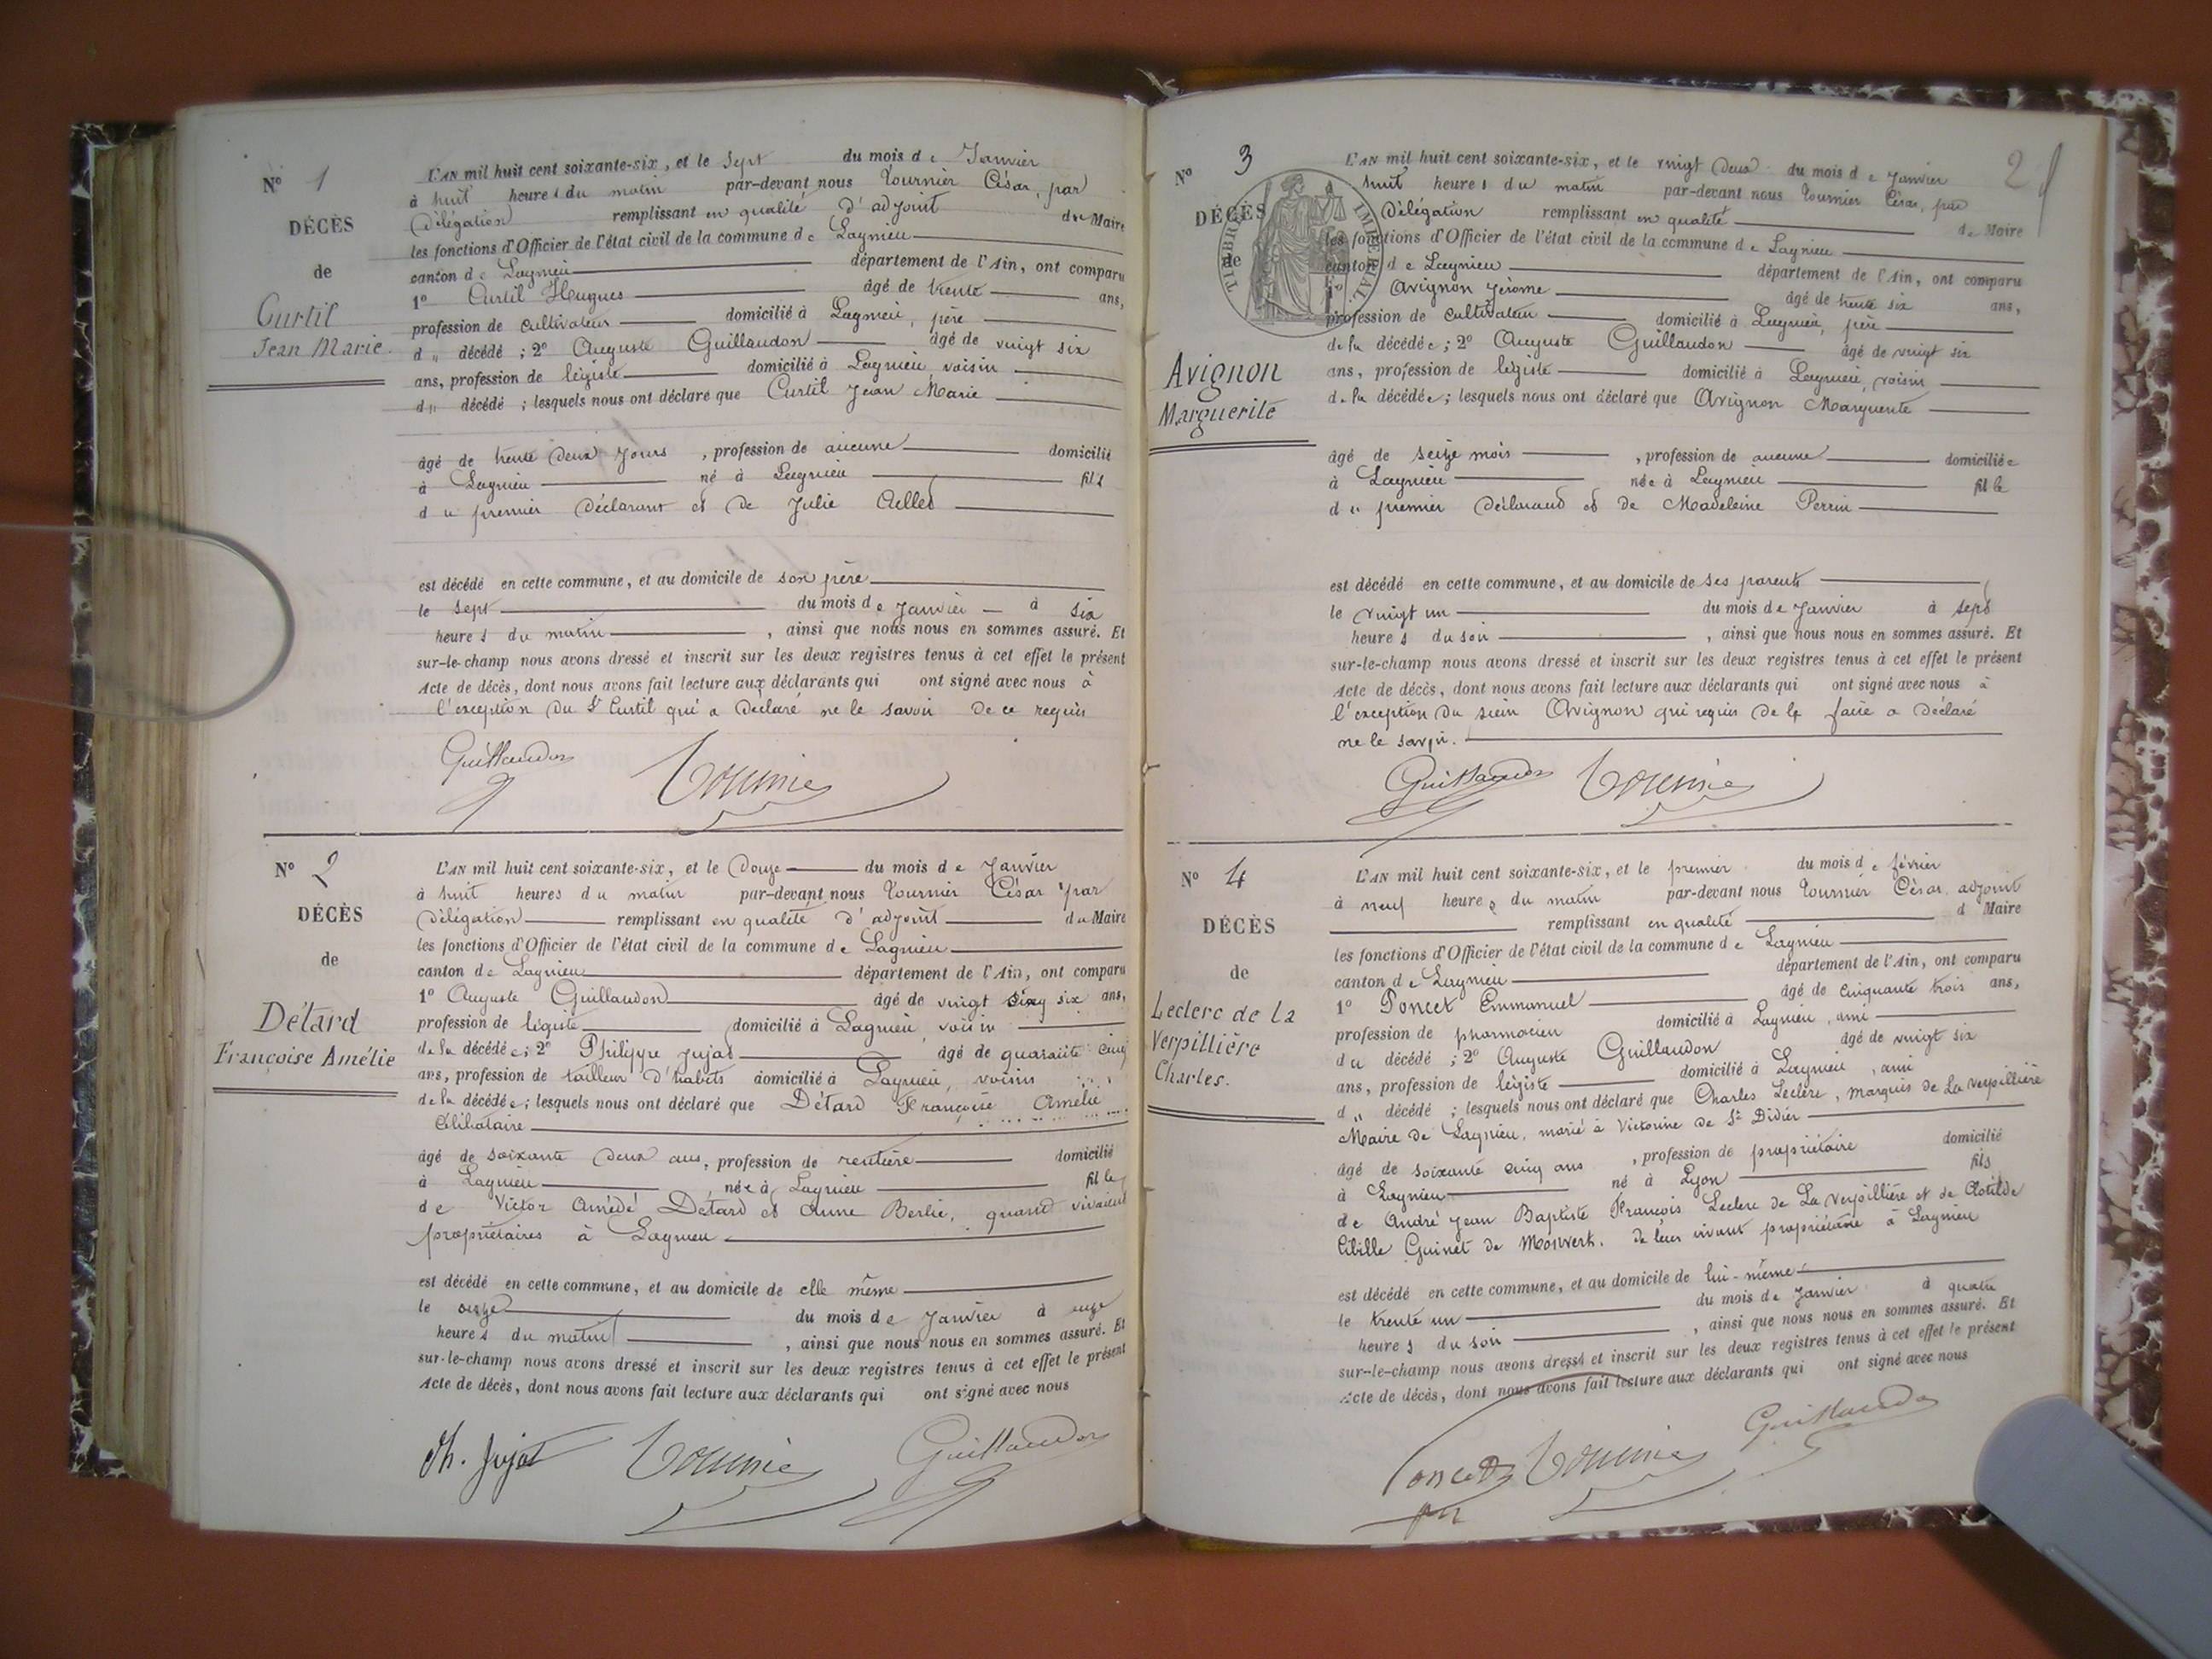 N° 1
DÉCÈS
de
Curtil
Jean Marie.
L'AN mil huit cent soixante-six, et le sept du mois de Janvier
à huit heures du matin par-devant nous Tournier César, par
Délégation remplissant en qualité d'adjoint du Maire
les fonctions d'Officier de l'état civil de la commune de Lagnieu
canton de Lagnieu département de l'Ain, ont comparu
1° Curtil Hugues âgé de trente ans,
profession de cultivateur domicilié à Lagnieu, père
d u décédé ; 2° Auguste Guillaudon âgé de vingt six
ans, profession de légiste domicilié à Lagnieu, voisin
d u décédé ; lesquels nous ont déclaré que Curtil Jean Marie
âgé de trente deux jours, profession de aucune domicilié
à Lagnieu né à Lagnieu fils
du premier déclarant et de Julie
est décédé en cette commune, et au domicile de son père
le sept du mois de Janvier à six
heures du matin, ainsi que nous nous en sommes assuré. Et
sur-le-champ nous avons dressé et inscrit sur les deux registres tenus à cet effet le présent
Acte de décès, dont nous avons fait lecture aux déclarants qui ont signé avec nous à
l'exception du Sr Curtil qui a déclaré ne le savoir de ce requis
Guillaudon Tournier
N° 2
DÉCÈS
de
Détard
Françoise Amélie
L'AN mil huit cent soixante-six, et le douze du mois de Janvier
à huit heures du matin par-devant nous Tournier César par
Délégation remplissant en qualité d'adjoint du Maire
les fonctions d'Officier de l'état civil de la commune de Lagnieu
canton de Lagnieu département de l'Ain, ont comparu
1° Auguste Guillaudon âgé de vingt six ans,
profession de légiste domicilié à Lagnieu, voisin
de la décédée; 2° Philippe Jujat âgé de quarante cinq
ans, profession de tailleur d'habits domicilié à Lagnieu, voisin
de la décédée; lesquels nous ont déclaré que Détard Françoise Amélie
Célibataire
âgé de soixante deux ans, profession de rentière domicilié
à Lagnieu née à Lagnieu fille
de Victor Amédé Détard et Anne Berlie, quand vivaient
propriétaires à Lagnieu
est décédé en cette commune, et au domicile de elle même
le onze du mois de Janvier à onze
heures du matin, ainsi que nous nous en sommes assuré. Et
sur-le-champ nous avons dressé et inscrit sur les deux registres tenus à cet effet le présent
Acte de décès, dont nous avons fait lecture aux déclarants qui ont signé avec nous
Ph. Jujat Tournier Guillaudon
2
N° 3
DÉCÈS
de
TIMBRE IMPÉRIAL
Avignon
Marguerite
L'AN mil huit cent soixante-six, et le vingt deux du mois de Janvier
huit heures du matin par-devant nous Tournier César, par
Délégation remplissant en qualité de Maire
les fonctions d'Officier de l'état civil de la commune de Lagnieu
canton de Lagnieu département de l'Ain, ont comparu
1° Avignon Jérome âgé de trente six ans,
profession de cultivateur domicilié à Lagnieu, père
de la décédée; 2° Auguste Guillaudon âgé de vingt six
ans, profession de légiste domicilié à Lagnieu, voisin
de la décédée; lesquels nous ont déclaré que Avignon Marguerite
âgé de seize mois, profession de aucune domiciliée
à Lagnieu née à Lagnieu fille
du premier déclarand et de Madeleine Perrin
est décédé en cette commune, et au domicile de ses parents
le vingt un du mois de Janvier à sept
heures du soir, ainsi que nous nous en sommes assuré. Et
sur-le-champ nous avons dressé et inscrit sur les deux registres tenus à cet effet le présent
Acte de décès, dont nous avons fait lecture aux déclarants qui ont signé avec nous à
l'exception du sieur Avignon qui requis de le faire a déclaré
ne le savoir.
Guillaudon Tournier
N° 4
DÉCÈS
de
Leclerc de la
Verpillière
Charles.
L'AN mil huit cent soixante-six, et le premier du mois de février
à neuf heures du matin par-devant nous Tournier César adjoint
remplissant en qualité d Maire
les fonctions d'Officier de l'état civil de la commune de Lagnieu
canton de Lagnieu département de l'Ain, ont comparu
1° Poncet Emmanuel âgé de cinquante trois ans,
profession de pharmacien domicilié à Lagnieu, ami
du décédé ; 2° Auguste Guillaudon âgé de vingt six
ans, profession de légiste domicilié à Lagnieu, ami
d u décédé ; lesquels nous ont déclaré que Charles Leclerc, Marquis de La Verpillière
Maire de Lagnieu, marié à Victorine de St Didier
âgé de soixante cinq ans, profession de propriétaire domicilié
à Lagnieu né à Lyon fils
de André Jean Baptiste François Leclerc de La Verpillière et de Clotilde
Cibille Guinet de Monvert. de leur vivant propriétaire à Lagnieu
est décédé en cette commune, et au domicile de lui-même
le trente un du mois de Janvier à quatre
heures du soir, ainsi que nous nous en sommes assuré. Et
sur-le-champ nous avons dressé et inscrit sur les deux registres tenus à cet effet le présent
Acte de décès, dont nous avons fait lecture aux déclarants qui ont signé avec nous
Poncet Tournier Guillaudon